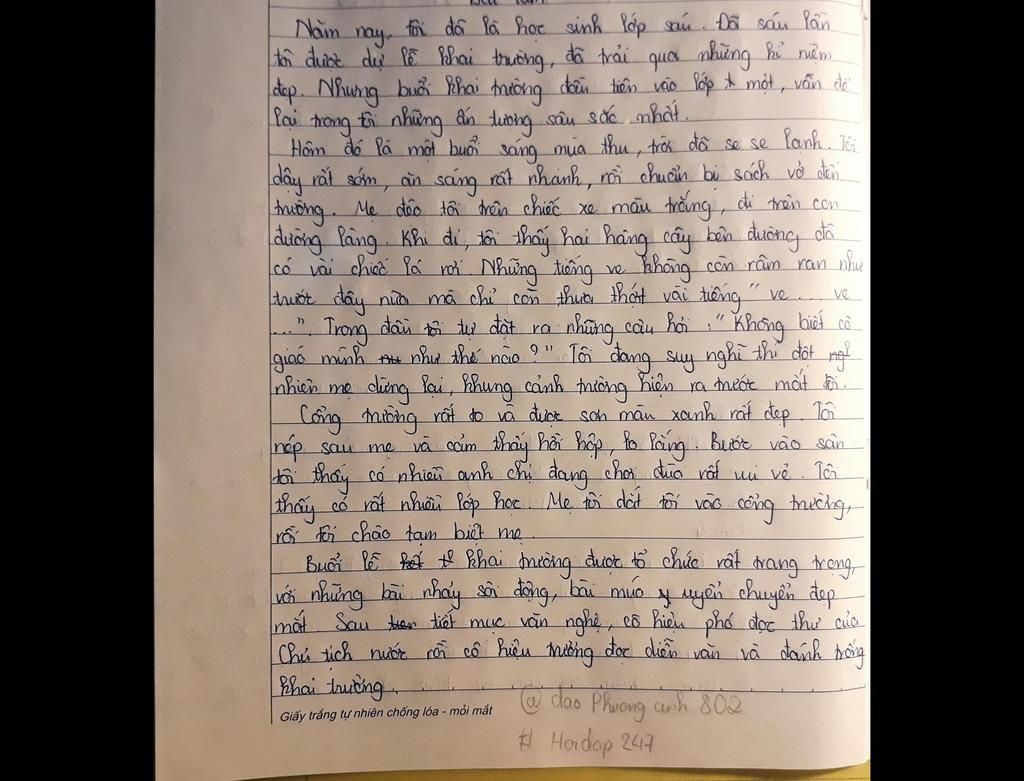 Năm nay, tôi đã là học sinh lớp sáu. Đã sáu lần
tôi được dự lễ khai trường, đã trải qua những kỉ niệm
đẹp. Nhưng buổi khai trường đầu tiên vào lớp một, vẫn để
lại trong tôi những ấn tượng sâu sắc nhất.
Hôm đó là một buổi sáng mùa thu, trời đã se se lạnh. Tôi
dậy rất sớm, ăn sáng rất nhanh, rồi chuẩn bị sách vở đến
trường. Mẹ đèo tôi trên chiếc xe màu trắng, đi trên con
đường làng. Khi đi, tôi thấy hai hàng cây bên đường đã
có vài chiếc lá rơi. Những tiếng ve không còn râm ran như
trước đây nữa mà chỉ còn thưa thớt vài tiếng "ve ... ve
...". Trong đầu tôi tự đặt ra những câu hỏi : "Không biết cô
giáo mình như thế nào ?" Tôi đang suy nghĩ thì đột
nhiên mẹ dừng lại, khung cảnh trường hiện ra trước mắt tôi.
Cổng trường rất to và được sơn màu xanh rất đẹp. Tôi
nép sau mẹ và cảm thấy hồi hộp, lo lắng. Bước vào sân
tôi thấy có nhiều anh chị đang chơi đùa rất vui vẻ. Tôi
thấy có rất nhiều lớp học. Mẹ tôi dắt tôi vào cổng trường,
rồi tôi chào tạm biệt mẹ.
Buổi lễ khai trường được tổ chức rất trang trọng,
với những bài nhảy sôi động, bài múa uyển chuyển đẹp
mắt. Sau tiết mục văn nghệ, cô hiệu phó đọc thư của
Chủ tịch nước rồi cô hiệu trưởng đọc diễn văn và đánh trống
khai trường.
Giấy trắng tự nhiên chống lóa - mỏi mắt
@ dao Phuong anh 802
# Hoidap 247